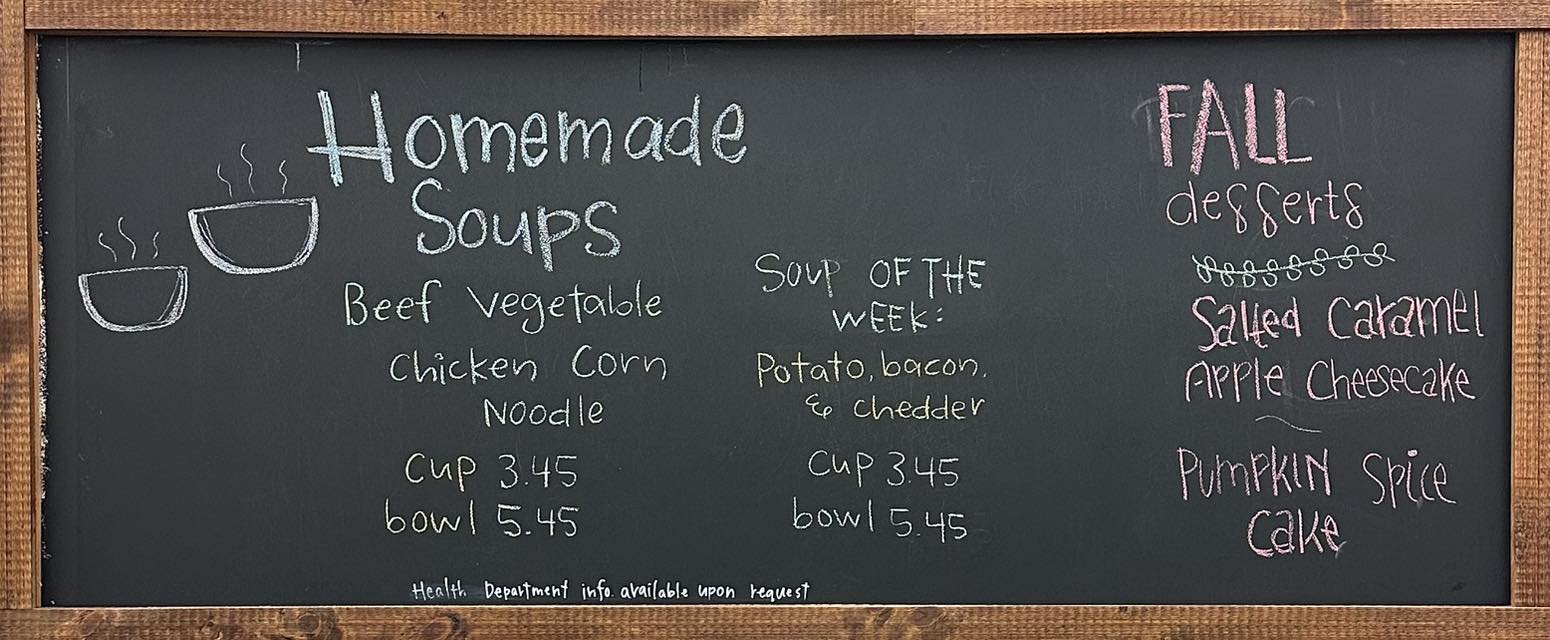 Homemade
Soups
Beef Vegetable
Chicken Corn
Noodle
Cup 3.45
bowl 5.45
Soup OF THE
WEEK:
Potato, bacon,
& chedder
Cup 3.45
bowl 5.45
FALL
desserts
Salted Caramel
Apple Cheesecake
PUMPKIN Spice
Cake
Health Department info. available upon request